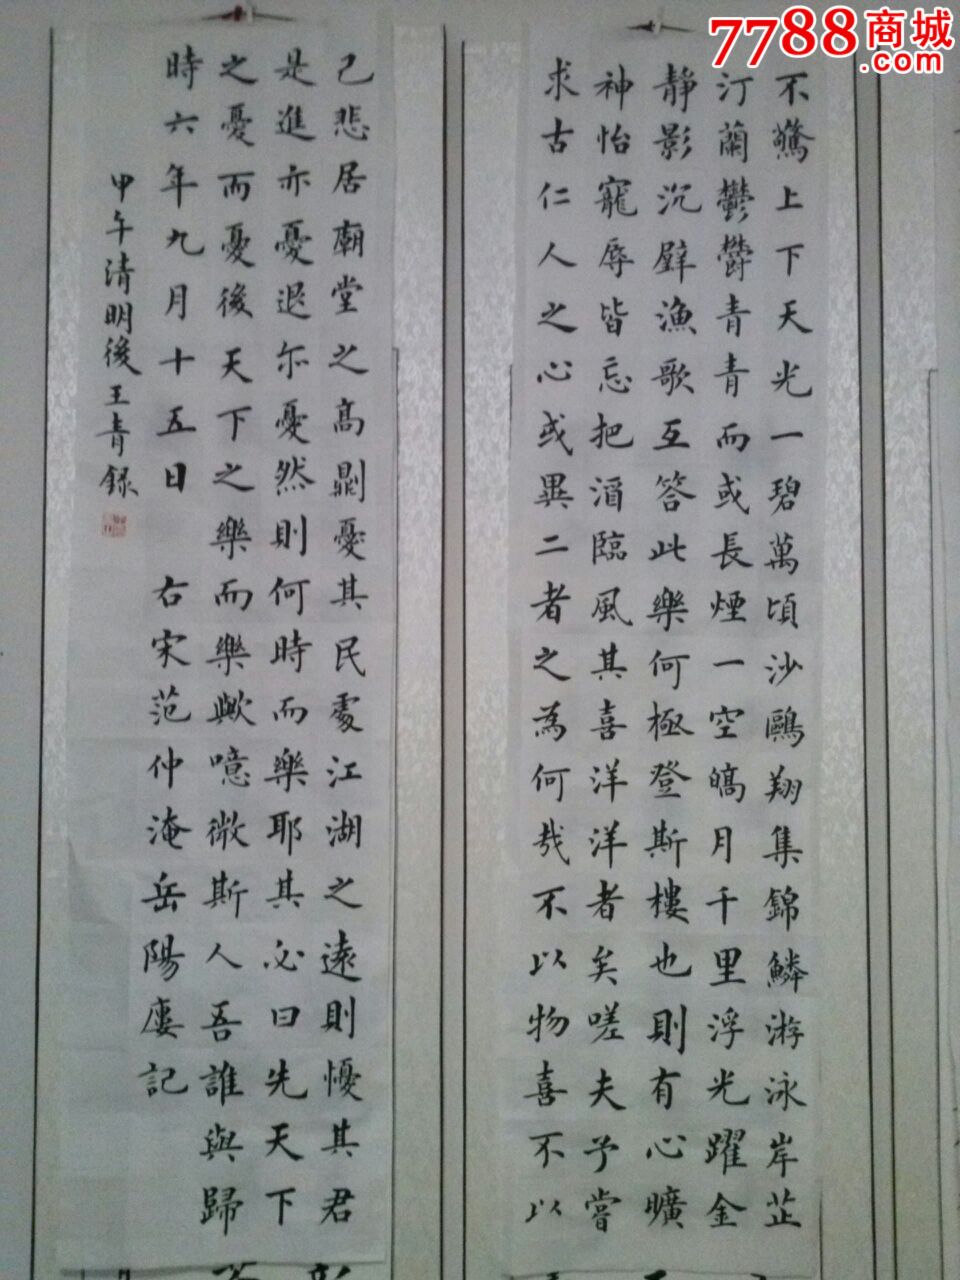 7788商城
.com
不驚上下天光一碧萬頃沙鷗翔集錦鱗游泳岸芷
汀蘭鬱鬱青青而或長煙一空皜月千里浮光躍金
静影沉壁漁歌互答此樂何極登斯樓也則有心曠
神怡寵辱皆忘把酒臨風其喜洋洋者矣嗟夫予嘗
求古仁人之心或異二者之為何哉不以物喜不以
己悲居廟堂之高則憂其民處江湖之遠則懮其君
是進亦憂退亦憂然則何時而樂耶其必曰先天下
之憂而憂後天下之樂而樂歟噫微斯人吾誰與歸
時六年九月十五日 右宋范仲淹岳陽廔記
甲午清明後王青録